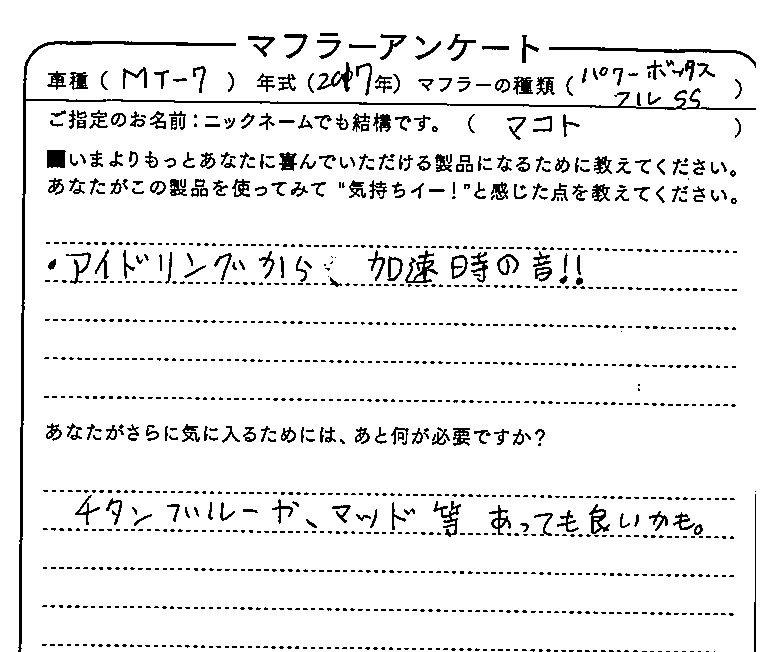 マフラーアンケート
車種（MT-7）年式（2017年）マフラーの種類（パワーボックス
フルSS）
ご指定のお名前：ニックネームでも結構です。（マコト）
■いまよりもっとあなたに喜んでいただける製品になるために教えてください。
あなたがこの製品を使ってみて"気持ちイー！"と感じた点を教えてください。
・アイドリングから、加速時の音!!
あなたがさらに気に入るためには、あと何が必要ですか？
チタンブルーか、マッド等あっても良いかも。